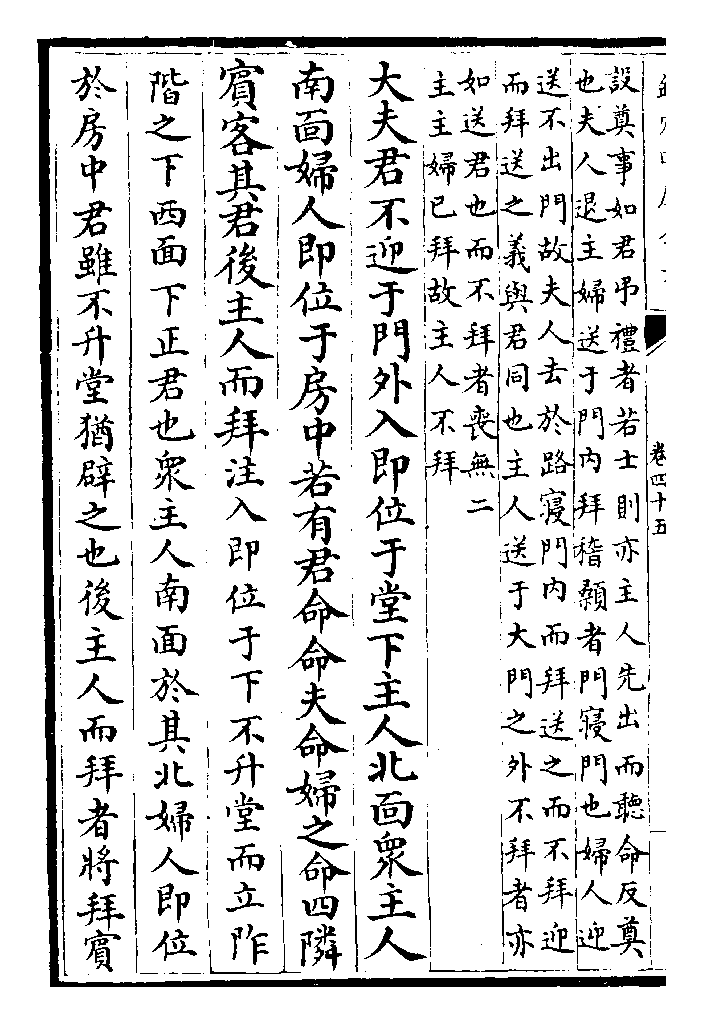 卷四十五
設奠事如君弔禮者若士則亦主人先出而聽命反奠
也夫人退主婦送于門內拜稽顙者門寢門也婦人迎
送不出門故夫人去於路寢門內而拜送之而不拜迎
而拜送之義與君同也主人送于大門之外不拜者亦
如送君也而不拜者喪無二
主主婦已拜故主人不拜
大夫君不迎于門外入即位于堂下主人北面衆主人
南面婦人即位于房中若有君命命夫命婦之命四隣
賓客其君後主人而拜注入即位于下不升堂而立阼
階之下西面下正君也衆主人南面於其北婦人即位
於房中君雖不升堂猶辟之也後主人而拜者將拜賓